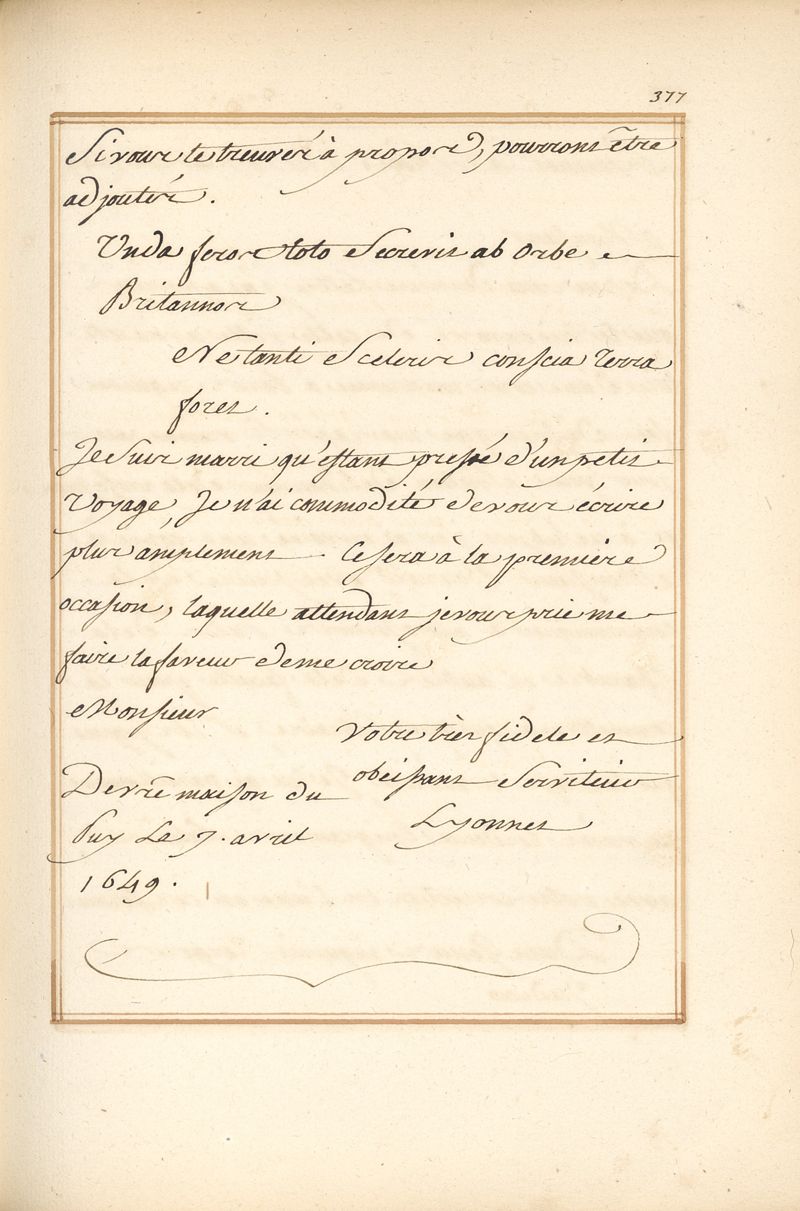 377
Si vous le treuvés à propos, pourront être
adjoutés.
Unda feros toto Secrevit ab Orbe
Britannos
Ne tanti Sceleris conscia Terra
foret.
Je Suis marri qu'estant pressé d'un petit
Voyage, Je n'ai commodité de vous écrire
plus amplement. Ce sera à la premiere
occasion, laquelle attendant je vous prie me
faire la faveur de me croire
Monsieur
Votre très fidele et
obeissant Serviteur
Lyonnet
De vr̃e maison du
Puy Le 7. avril
1649.